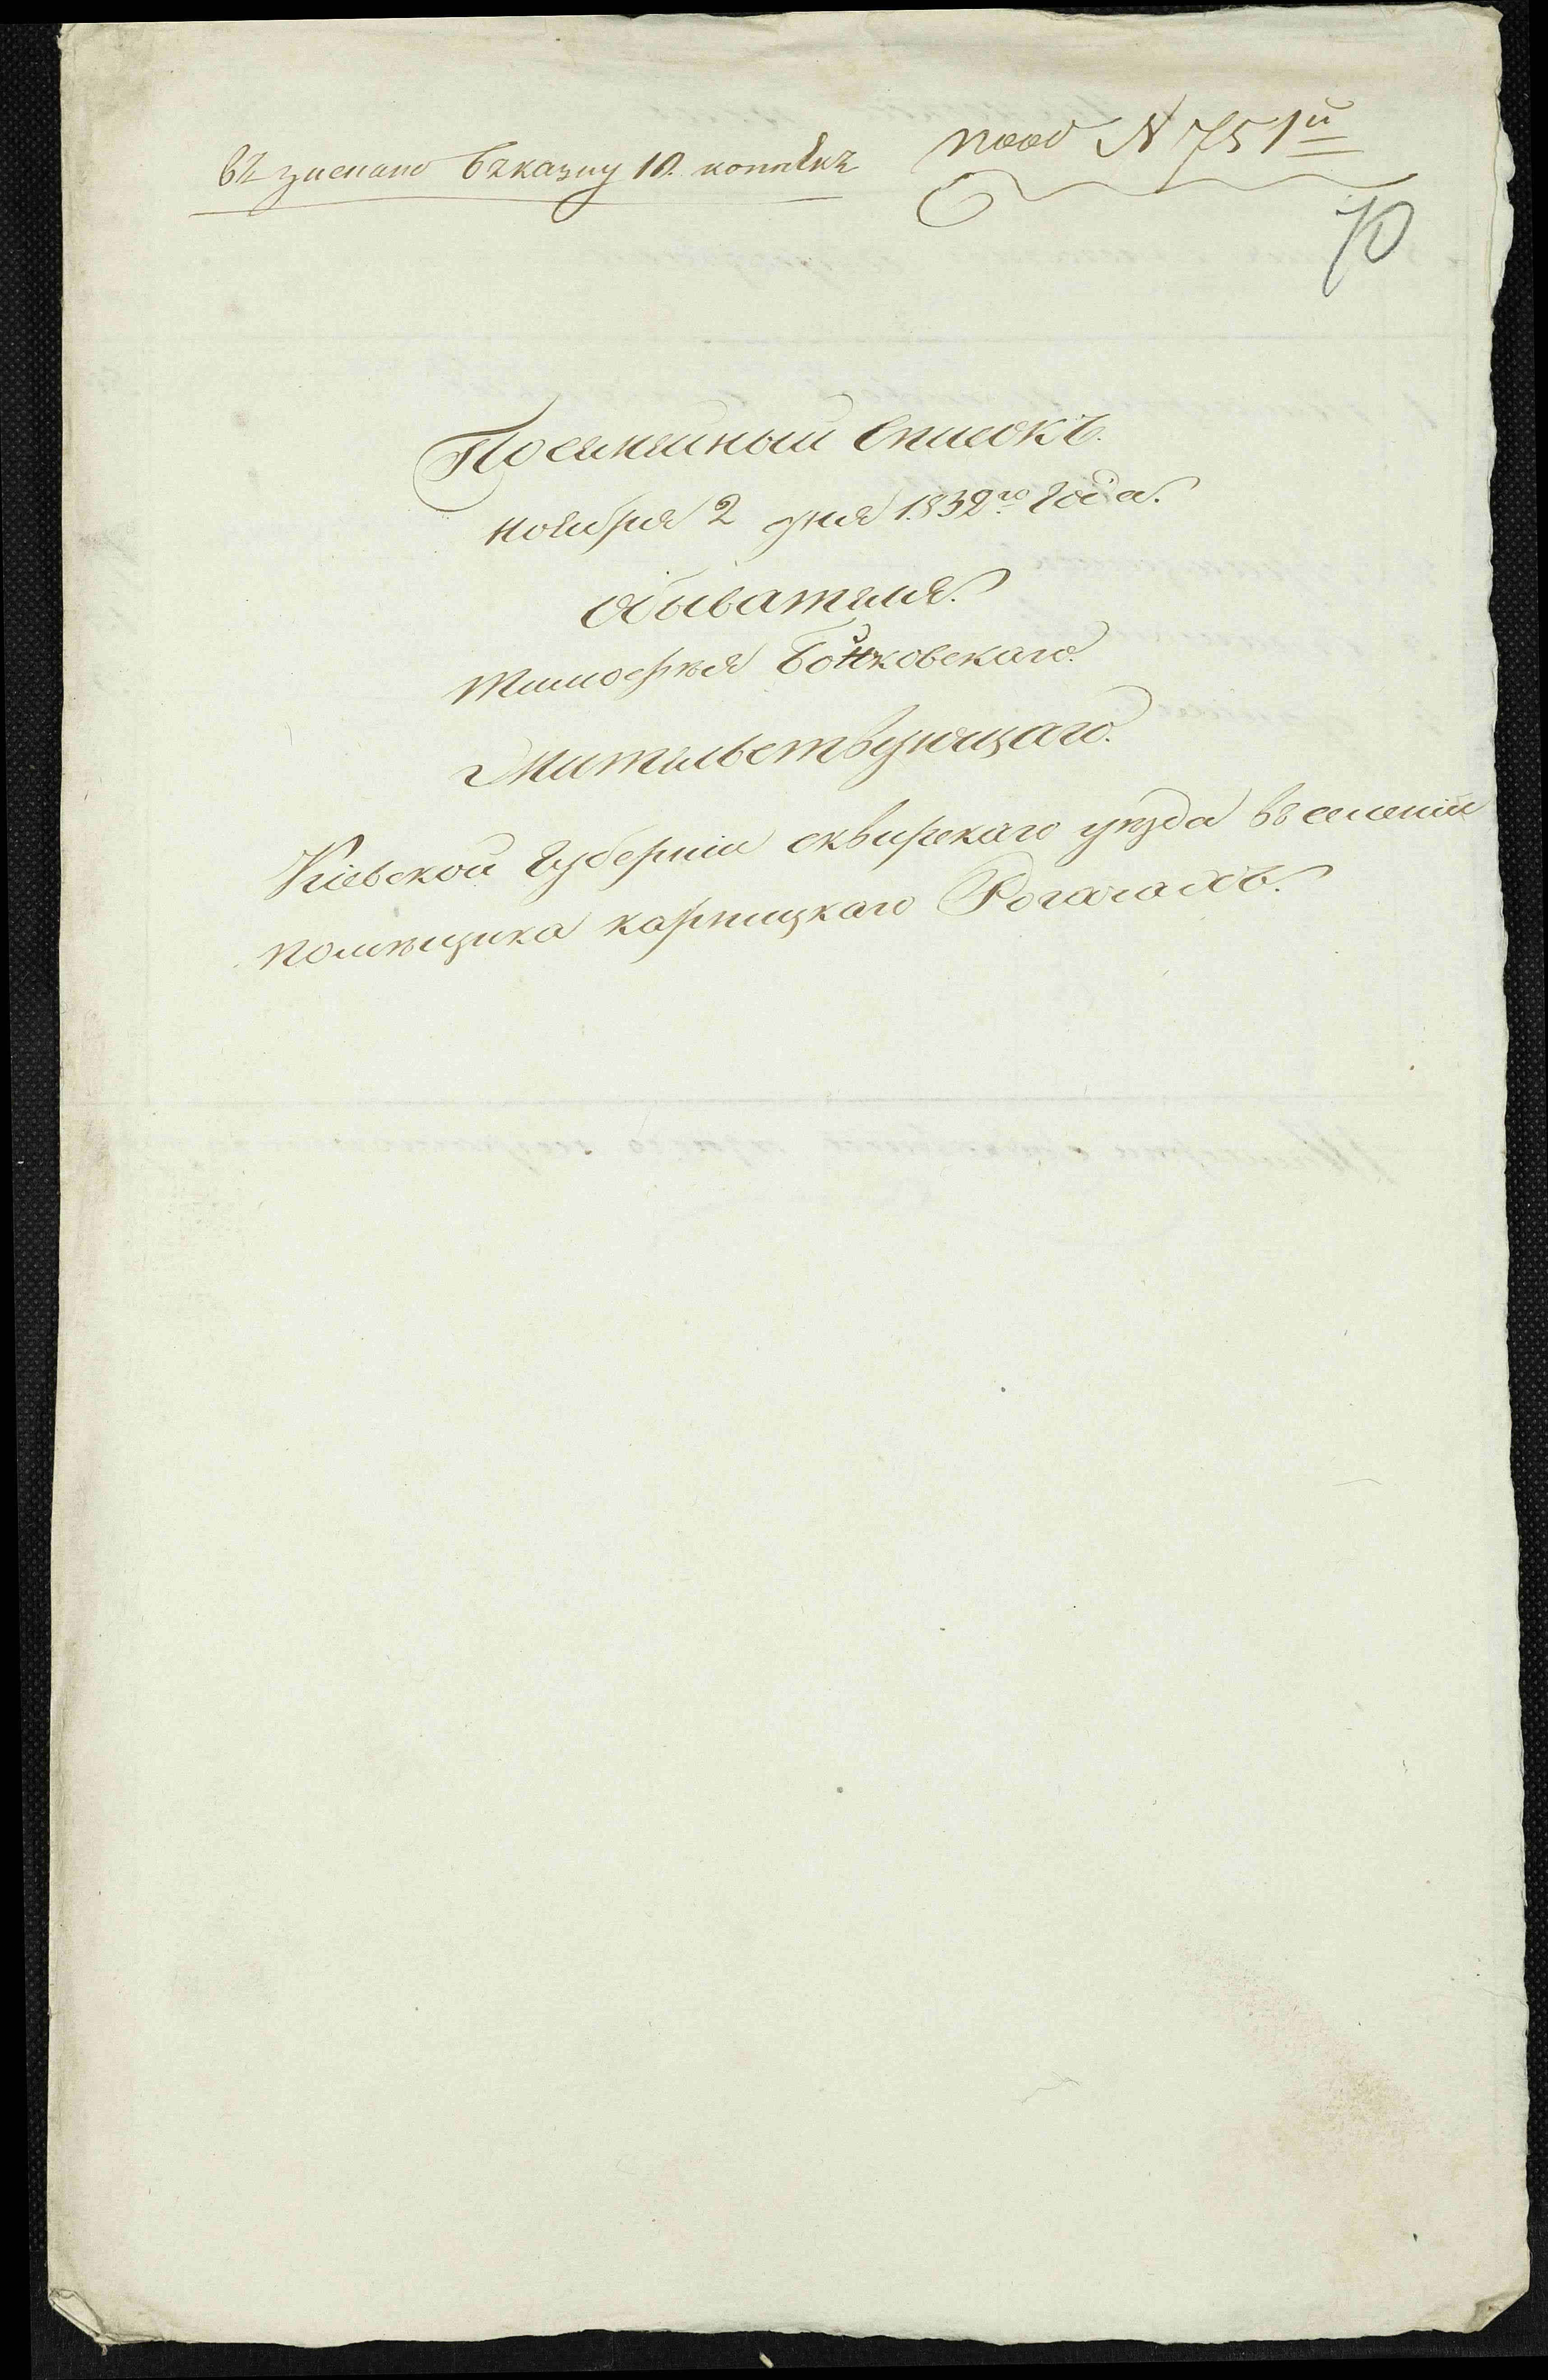 въ зыскано въ казну 10. копѣекъ
под N 751й
70
Посемейный Список.
ноября 2 дня 1832го года.
обывателя.
тимофѣя Бойковскаго.
Жительствующаго.
Кіевской губерніи сквирскаго уѣзда въ селеніи
помѣщика карпицкаго